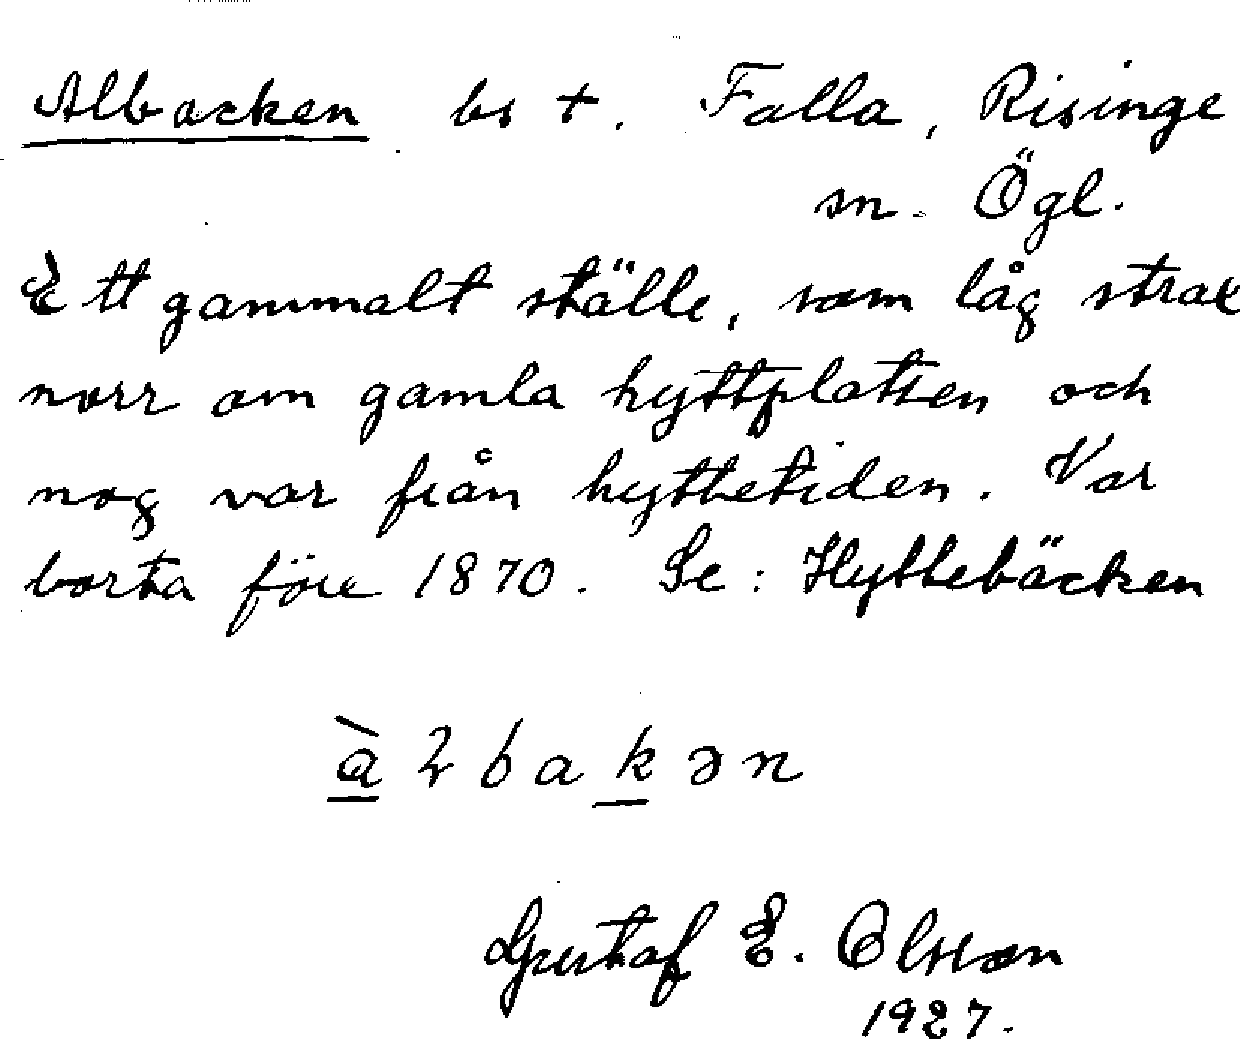 Albacken bs +. Falla, Risinge
sn. Ögl.
Ett gammalt ställe, som låg strax
norr om gamla hyttplatsen och
nog var från hyttetiden. Var
borta före 1870. Se: Hyttebäcken
àɽbakən
Gustaf E. Olsson
1927.